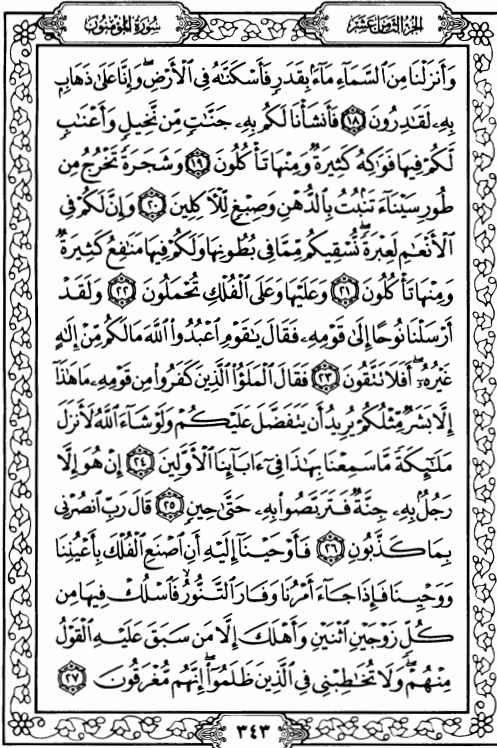 سُورَةُ المُؤْمِنُون
الجُزْءُ الثَّامِنَ عَشَرَ
وَأَنزَلْنَا مِنَ ٱلسَّمَآءِ مَآءًۢ بِقَدَرٍ فَأَسْكَنَّٰهُ فِى ٱلْأَرْضِ ۖ وَإِنَّا عَلَىٰ ذَهَابٍۭ
بِهِۦ لَقَٰدِرُونَ ﴿١٨﴾ فَأَنشَأْنَا لَكُم بِهِۦ جَنَّٰتٍ مِّن نَّخِيلٍ وَأَعْنَٰبٍ
لَّكُمْ فِيهَا فَوَٰكِهُ كَثِيرَةٌ وَمِنْهَا تَأْكُلُونَ ﴿١٩﴾ وَشَجَرَةً تَخْرُجُ مِن
طُورِ سَيْنَآءَ تَنۢبُتُ بِٱلدُّهْنِ وَصِبْغٍ لِّلْءَاكِلِينَ ﴿٢٠﴾ وَإِنَّ لَكُمْ فِى
ٱلْأَنْعَٰمِ لَعِبْرَةً ۖ نُّسْقِيكُم مِّمَّا فِى بُطُونِهَا وَلَكُمْ فِيهَا مَنَٰفِعُ كَثِيرَةٌ
وَمِنْهَا تَأْكُلُونَ ﴿٢١﴾ وَعَلَيْهَا وَعَلَى ٱلْفُلْكِ تُحْمَلُونَ ﴿٢٢﴾ وَلَقَدْ
أَرْسَلْنَا نُوحًا إِلَىٰ قَوْمِهِۦ فَقَالَ يَٰقَوْمِ ٱعْبُدُوا۟ ٱللَّهَ مَا لَكُم مِّنْ إِلَٰهٍ
غَيْرُهُۥٓ ۖ أَفَلَا تَتَّقُونَ ﴿٢٣﴾ فَقَالَ ٱلْمَلَؤُا۟ ٱلَّذِينَ كَفَرُوا۟ مِن قَوْمِهِۦ مَا هَٰذَآ
إِلَّا بَشَرٌ مِّثْلُكُمْ يُرِيدُ أَن يَتَفَضَّلَ عَلَيْكُمْ وَلَوْ شَآءَ ٱللَّهُ لَأَنزَلَ
مَلَٰٓئِكَةً مَّا سَمِعْنَا بِهَٰذَا فِىٓ ءَابَآئِنَا ٱلْأَوَّلِينَ ﴿٢٤﴾ إِنْ هُوَ إِلَّا
رَجُلٌۢ بِهِۦ جِنَّةٌ فَتَرَبَّصُوا۟ بِهِۦ حَتَّىٰ حِينٍ ﴿٢٥﴾ قَالَ رَبِّ ٱنصُرْنِى
بِمَا كَذَّبُونِ ﴿٢٦﴾ فَأَوْحَيْنَآ إِلَيْهِ أَنِ ٱصْنَعِ ٱلْفُلْكَ بِأَعْيُنِنَا
وَوَحْيِنَا فَإِذَا جَآءَ أَمْرُنَا وَفَارَ ٱلتَّنُّورُ ۙ فَٱسْلُكْ فِيهَا مِن
كُلٍّ زَوْجَيْنِ ٱثْنَيْنِ وَأَهْلَكَ إِلَّا مَن سَبَقَ عَلَيْهِ ٱلْقَوْلُ
مِنْهُمْ ۖ وَلَا تُخَٰطِبْنِى فِى ٱلَّذِينَ ظَلَمُوٓا۟ ۖ إِنَّهُم مُّغْرَقُونَ ﴿٢٧﴾
٣٤٣